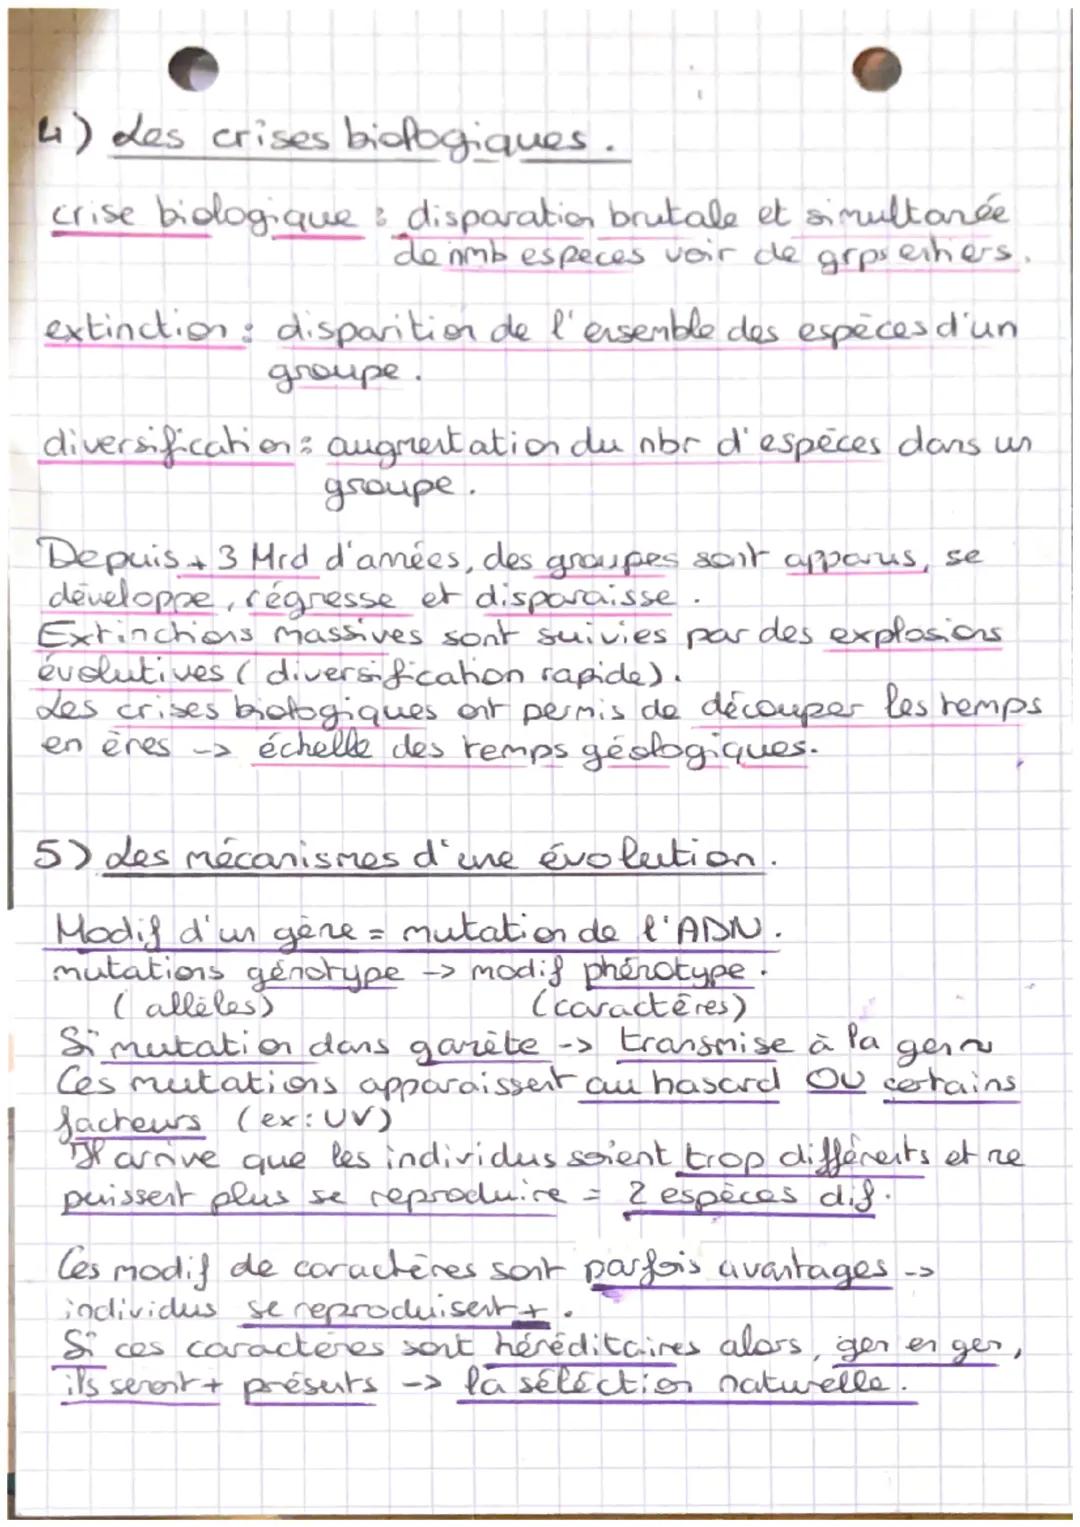 4) Les crises biologiques.
crise biologique : disparation brutale et simultanée
de nmb especes voir de grps entiers.
extinction : disparition de l'ensemble des espèces d'un
groupe.
diversification : augmentation du nbr d'espèces dans un
groupe.
Depuis + 3 Mrd d'années, des groupes sont apparus, se
développe, régresse et disparaisse.
Extinctions massives sont suivies par des explosions
évolutives (diversification rapide).
Les crises biologiques ont permis de découper les temps
en ères -> échelle des temps géologiques.
5) Les mécanismes d'une évolution.
Modif d'un gène = mutation de l'ADN.
mutations génotype -> modif phénotype.
(allèles) (caractères)
Si mutation dans gamète -> transmise à la gen
Ces mutations apparaissent au hasard OU certains
facteurs (ex: UV)
Il arrive que les individus soient trop différents et ne
puissent plus se reproduire = 2 espèces dif.
Ces modif de caractères sont parfois avantages ->
individus se reproduisent +.
Si ces caractères sont héréditaires alors, gen en gen,
ils seront + présents -> la séléction naturelle.